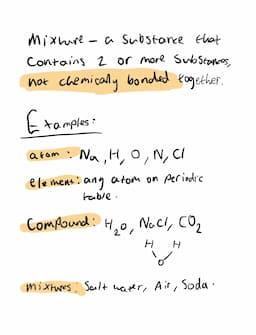 Mixture - a Substance that
Contains 2 or more Substances,
not chemically bonded together.
Examples:
atom: Na, H, O, N, Cl
element: any atom on periodic
table.
Compound: H₂O, NaCl, CO₂
H H
O
mixtures: Salt water, Air, Soda.